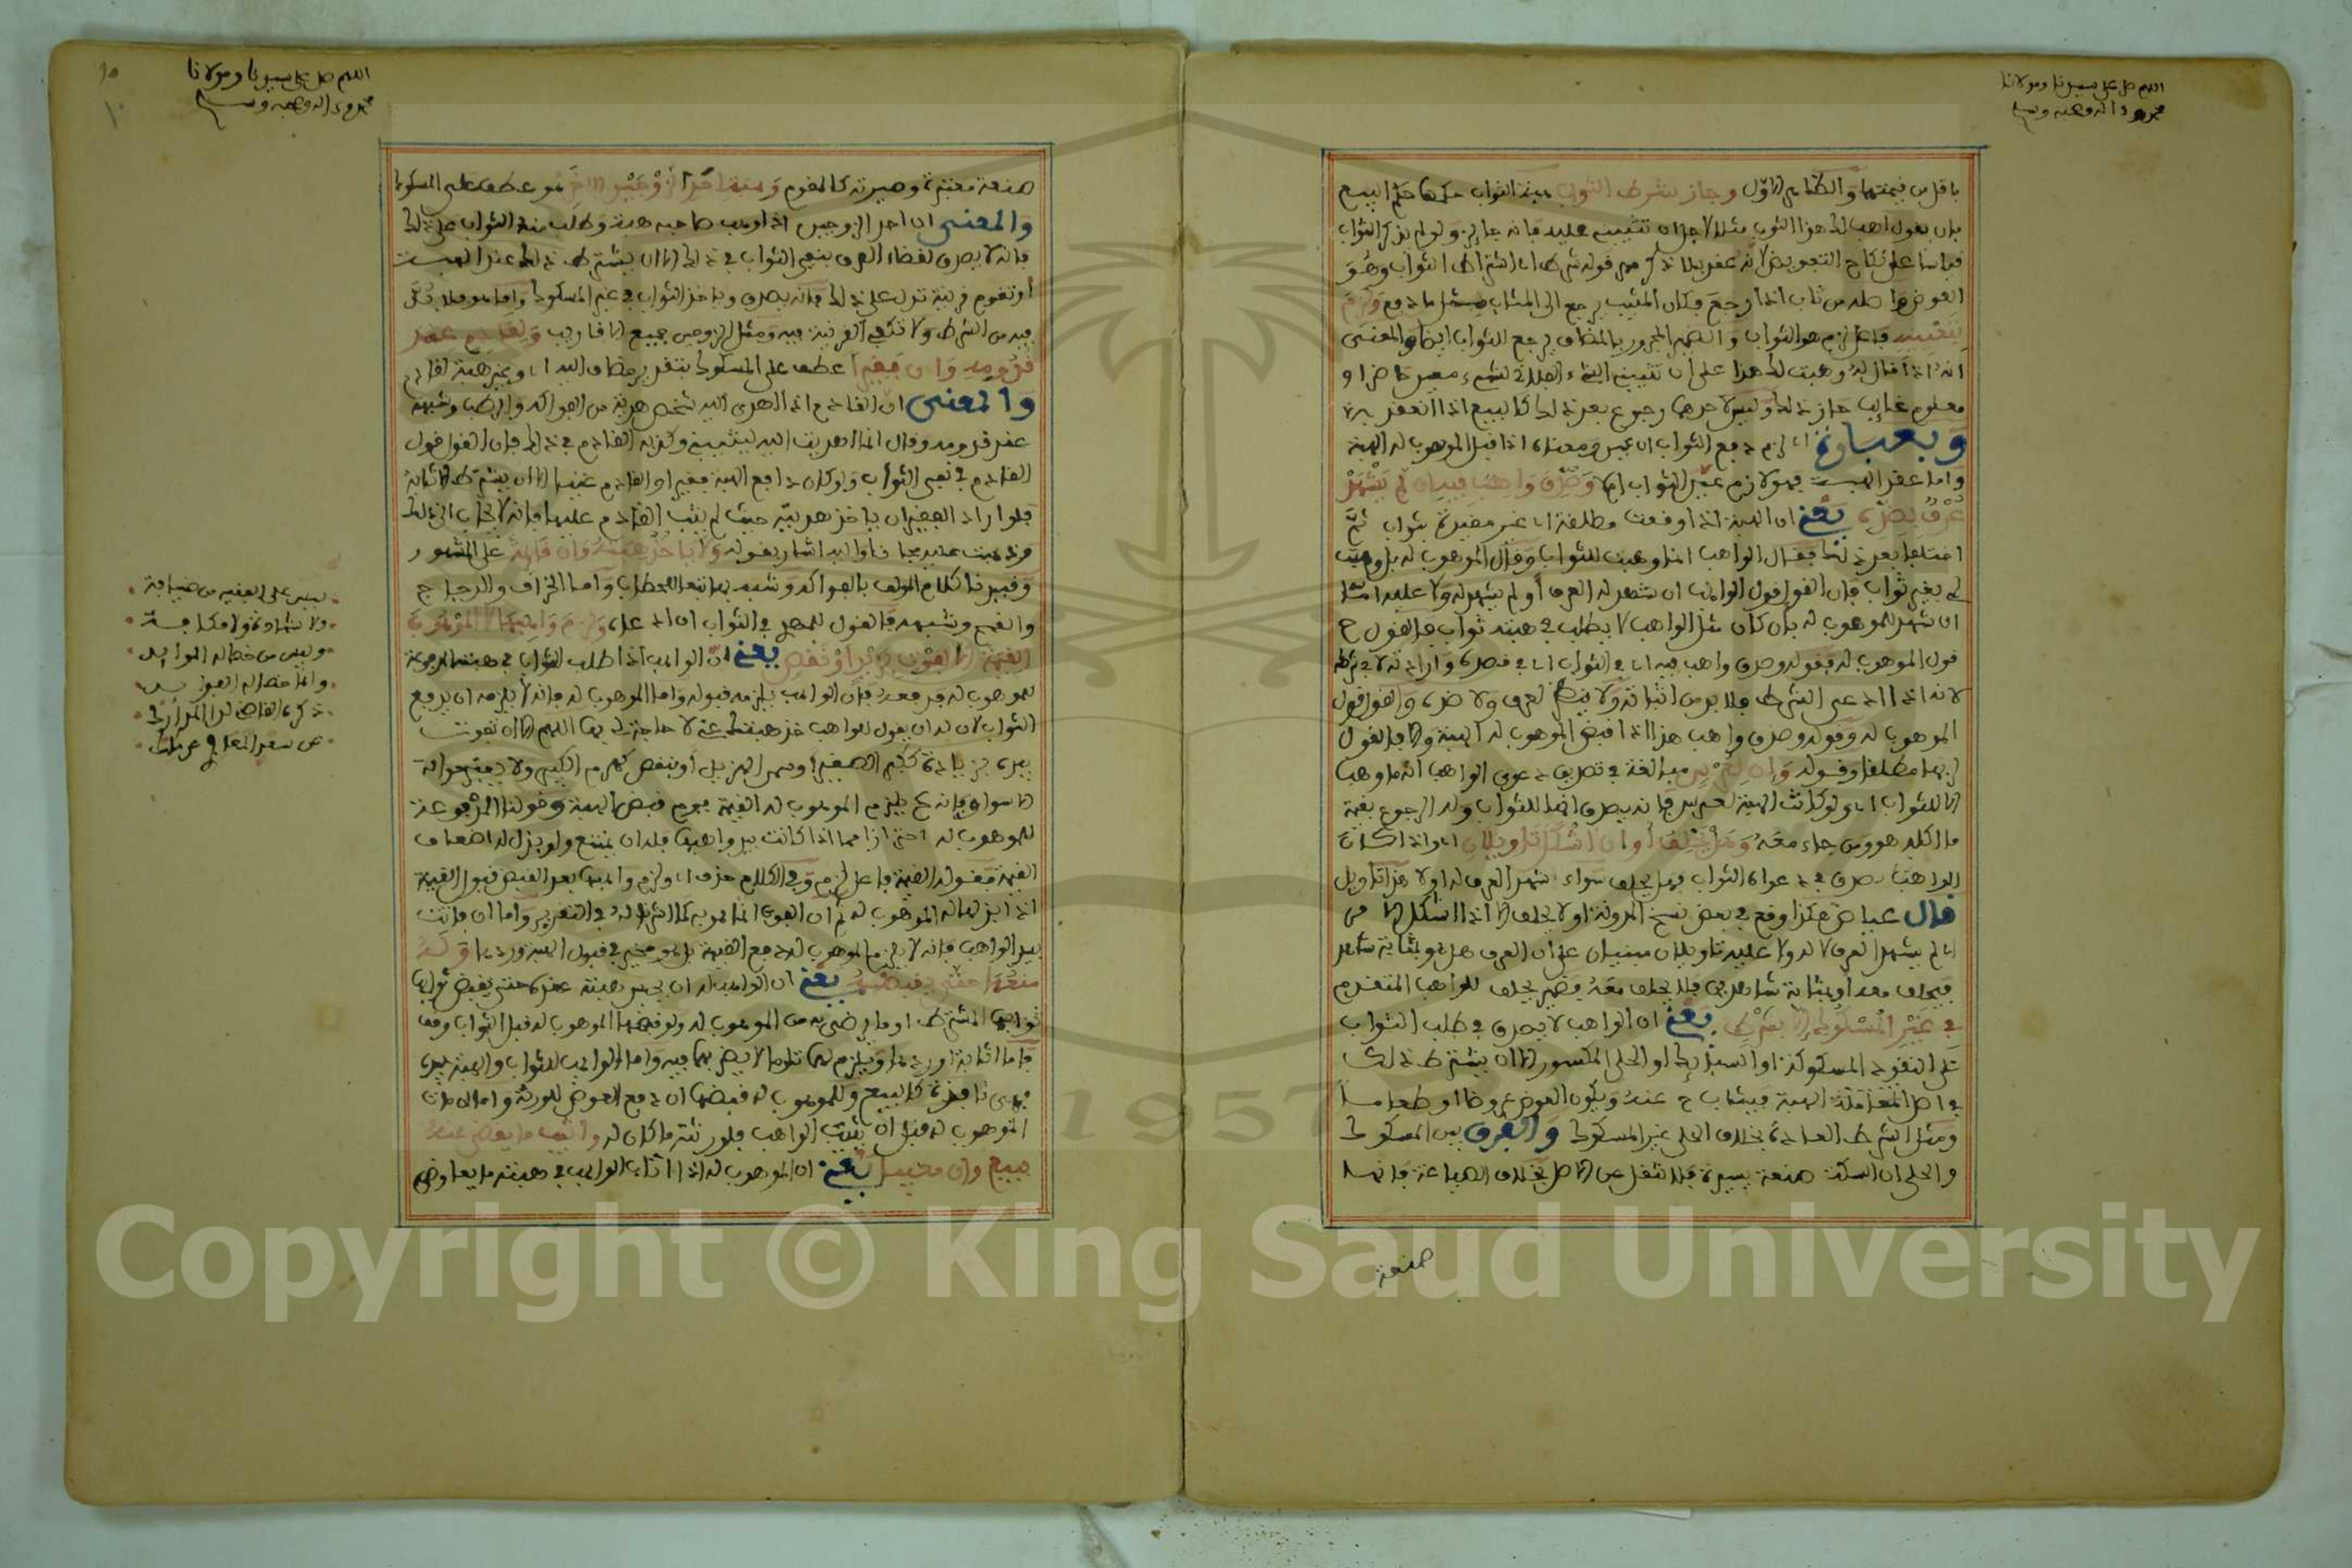 اللهم صل على سيدنا ومولانا
محمد وءاله وصحبه وسلم
باقل من قيمتها والظاهر الاول وجاز شرط الثواب هبة الثواب حكمها حكم البيع
بان يقول اهب لك هذا الثوب مثلا لاجل ان تثيبني عليه فانه جايز ولو لم يذكر الثواب
قياسا على نكاح التفويض لانه عقد بلا ذكر مهر قوله شرط اى اشتراط الثواب وهو
العوض واصله من ثاب اذا رجع وكان المثيب يرجع الى المثاب مثل ما دفع ولزم
بتعيينه فاعل لزم هو الثواب والضمير المجرور بالمضاف يرجع للثواب ايضا والمعنى
انه اذا قال له وهبت لك هذا على ان تثيبني الشىء الفلاني لشىء معين حاضر او
معلوم غايب جاز ذلك وليس لاحدهما رجوع بعد ذلك كالبيع اذا انعقد
وبعبارة اى لزم دفع الثواب ان عين ومعناه اذا قبل الموهوب له الهبة
واما عقد الهبة فهو لازم عين الثواب ام لا وصدق واهب فيه ان لم يشهد
عرف بضده يعني ان الهبة اذا وقعت مطلقة اى غير مقيدة بثواب ثم
اختلفا بعد ذلك فقال الواهب انما وهبت للثواب وقال الموهوب له بل وهبت
لي بغير ثواب فان القول قول الواهب ان شهد له العرف او لم يشهد له ولا عليه
ان شهد للموهوب له بان كان مثل الواهب لا يطلب في هبته ثواب فالقول ح
قول الموهوب له فقوله وصدق واهب فيه اى في الثواب اى في قصده وارادته لا في شرطه
لانه اذا ادعى الشرط فلا بد من اثباته ولا ينظر لعرف ولا ضده والقول قول
الموهوب له وقوله وصدق واهب هذا اذا قبض الموهوب له الهبة والا فالقول
لربها مطلقا وقوله وان لعرس مبالغة في تصديق دعوى الواهب انه ما وهب
الا للثواب اى ولو كانت الهبة لعرس فانه يصدق انها للثواب وله الرجوع بقيمة
ما اكله هو ومن جاء معه وهل يحلف او ان اشكل تاويلان اى واذا كان
الواهب يصدق في دعواه الثواب فهل يحلف سواء شهد العرف له اولا هذا تاويل
قال عياض هكذا وقع في بعض نسخ المدونة او لا يحلف الا اذا اشكل الامر
اى لم يشهد العرف لا له ولا عليه تاويلان مبنيان على ان العرف هل هو بمثابة شاهد
فيحلف معه او بمثابة شاهدين فلا يحلف معه وضمير يحلف للواهب المتقدم
في غير المسكوك الا بشرط يعني ان الواهب لا يصدق في طلب الثواب
على النقود المسكوكة او السبايك او الحلي المكسور الا ان يشترط ذلك
في اصل المعاملة الهبة فيثاب ح عنه ويكون العوض عرضا او طعاما
ومثل الشرط العادة بخلاف الحلي غير المسكوك والفرق بين المسكوك
والحلي ان السكة صنعة يسيرة فلا تنقل عن الاصل بخلاف الصياغة فانها
صنعة
اللهم صل على سيدنا ومولانا
محمد وءاله وصحبه وسلم
١٠
صنعة معتبرة وصيرته كالمقوم وهبة احد الزوجين للاخر هو عطف على المسكوك
والمعنى ان احد الزوجين اذا وهب صاحبه هبة وطلب منه الثواب على ذلك
فانه لا يصدق لقضاء العرف بنفي الثواب في ذلك الا ان يشترط ذلك عند الهبة
او تقوم قرينة تدل على ذلك فانه يصدق وياخذ الثواب في غير المسكوك واما هو فلا بد
فيه من الشرط ولا تكفي القرينة فيه ومثل الزوجين جميع الاقارب ولقادم عند
قدومه وان فقيرا عطف على المسكوك بتقدير مضاف اليه اى وغير هبة لقادم
والمعنى ان القادم اذا اهدى اليه شخص هدية من الفواكه والرطب وشبهه
عند قدومه وقال انما اهديت اليه ليثيبني وكذبه القادم في ذلك فان القول قول
القادم في نفي الثواب ولو كان دافع الهبة فقيرا والقادم غنيا الا ان يشترط الاثابة
فلو اراد الفقير ان ياخذ هديته حيث لم يثب القادم عليها فانه لا يجاب الى ذلك
وتذهب عليه مجانا واليه اشار بقوله ولا ياخذ هبته وان قايمة على المشهور
وقيدنا كلام المولف بالفواكه وشبهه تبعا للحطاب واما الخراف والدجاج
والقمح وشبهه فالقول للمهدي في الثواب ان ادعاه ولزم واهبها لا الموهوب
القيمة الا لفوت بزيد او نقص يعني ان الواهب اذا طلب الثواب في هبته المدفوعة
للموهوب له فدفعه فان الواهب يلزمه قبوله واما الموهوب له فانه لا يلزمه ان يدفع
الثواب لان له ان يقول للواهب خذ هبتك عني لا حاجة لي بها اللهم الا ان تفوت
بيده بزيادة ككبر الصغير او سمن الهزيل او بنقص كهرم الكبير ولا يعتبر حوالة
الاسواق فانه ح يلزم الموهوب له القيمة يوم قبض الهبة وقولنا المدفوعة
للموهوب له احترازا مما اذا كانت بيد واهبها فله ان يمتنع ولو بذل له اضعاف
القيمة فقوله القيمة فاعل لزم وفي الكلام حذف اى ولزم واهبها بعد القبض قبول القيمة
اذا بذلها له الموهوب له ثم ان الفوت انما هو به كما اشرنا له في التقرير واما ان فاتت
بيد الواهب فانه لا يلزم الموهوب له دفع القيمة بل هو مخير في قبول الهبة وردها وله
منعها حتى يقبضه يعني ان الواهب له ان يحبس هبته عنده حتى يقبض ثوابها
ثوابها المشترط او ما رضي به من الموهوب له ولو قبضها الموهوب له قبل الثواب وقف
فاما اثابة او ردها ويلزم لهما تلوما لا يضر بهما فيه واما الواهب للثواب والهبة بيده
فهي نافذة كالبيع وللموهوب له قبضها ان دفع العوض للورثة واما ان مات
الموهوب له قبل ان يثيب الواهب فلورثته ما كان له واثيب ما يقضى عنه
ببيع وان معيبا يعني ان الموهوب له اذا اثاب الواهب في هبته ما يعاوض
ليس على الفقيه من ضيافة
ولا شهادة ولا مكافاة